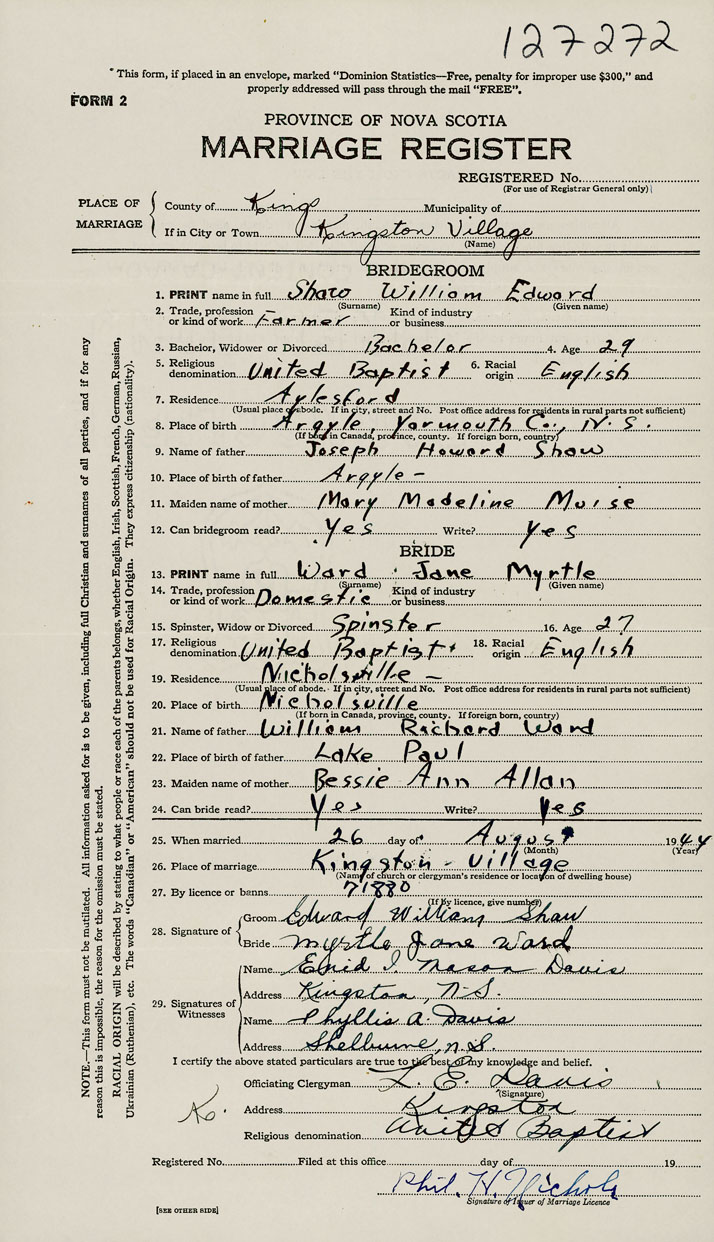 127272
* This form, if placed in an envelope, marked “Dominion Statistics—Free, penalty for improper use $300,” and
properly addressed will pass through the mail “FREE”.
FORM 2
PROVINCE OF NOVA SCOTIA
MARRIAGE REGISTER
REGISTERED No.
(For use of Registrar General only)
PLACE OF MARRIAGE
County of Kings Municipality of
If in City or Town Kingston Village
(Name)
BRIDEGROOM
1. PRINT name in full Shaw William Edward
(Surname) (Given name)
2. Trade, profession or kind of work Farmer Kind of industry or business
3. Bachelor, Widower or Divorced Bachelor 4. Age 29
5. Religious denomination United Baptist 6. Racial origin English
7. Residence Aylesford
(Usual place of abode. If in city, street and No. Post office address for residents in rural parts not sufficient)
8. Place of birth Argyle, Yarmouth Co., N.S.
(If born in Canada, province, county. If foreign born, country)
9. Name of father Joseph Howard Shaw
10. Place of birth of father Argyle -
11. Maiden name of mother Mary Madeline Muise
12. Can bridegroom read? Yes Write? Yes
BRIDE
13. PRINT name in full Ward Jane Myrtle
(Surname) (Given name)
14. Trade, profession or kind of work Domestic Kind of industry or business
15. Spinster, Widow or Divorced Spinster 16. Age 27
17. Religious denomination United Baptist 18. Racial origin English
19. Residence Nicholsville -
(Usual place of abode. If in city, street and No. Post office address for residents in rural parts not sufficient)
20. Place of birth Nicholsville
(If born in Canada, province, county. If foreign born, country)
21. Name of father William Richard Ward
22. Place of birth of father Lake Paul
23. Maiden name of mother Bessie Ann Allan
24. Can bride read? Yes Write? Yes
25. When married 26 day of August 1944
(Month) (Year)
26. Place of marriage Kingston - Village
(Name of church or clergyman's residence or location of dwelling house)
27. By licence or banns 71880
(If by licence, give number)
28. Signature of
Groom Edward William Shaw
Bride Myrtle Jane Ward
29. Signatures of Witnesses
Name Enid I. Mason Davis
Address Kingston, N.S.
Name Phyllis A. Davis
Address Shelburne, N.S.
I certify the above stated particulars are true to the best of my knowledge and belief.
Officiating Clergyman L. E. Davis
(Signature)
Address Kingston
Religious denomination United Baptist
Registered No. Filed at this office day of 19
Phil. H. Nichols
Signature of Issuer of Marriage Licence
[SEE OTHER SIDE]
NOTE.—This form must not be mutilated. All information asked for is to be given, including full Christian and surnames of all parties, and if for any
reason this is impossible, the reason for the omission must be stated.
RACIAL ORIGIN will be described by stating to what people or race each of the parents belongs, whether English, Irish, Scottish, French, German, Russian,
Ukrainian (Ruthenian), etc. The words “Canadian” or “American” should not be used for Racial Origin. They express citizenship (nationality).